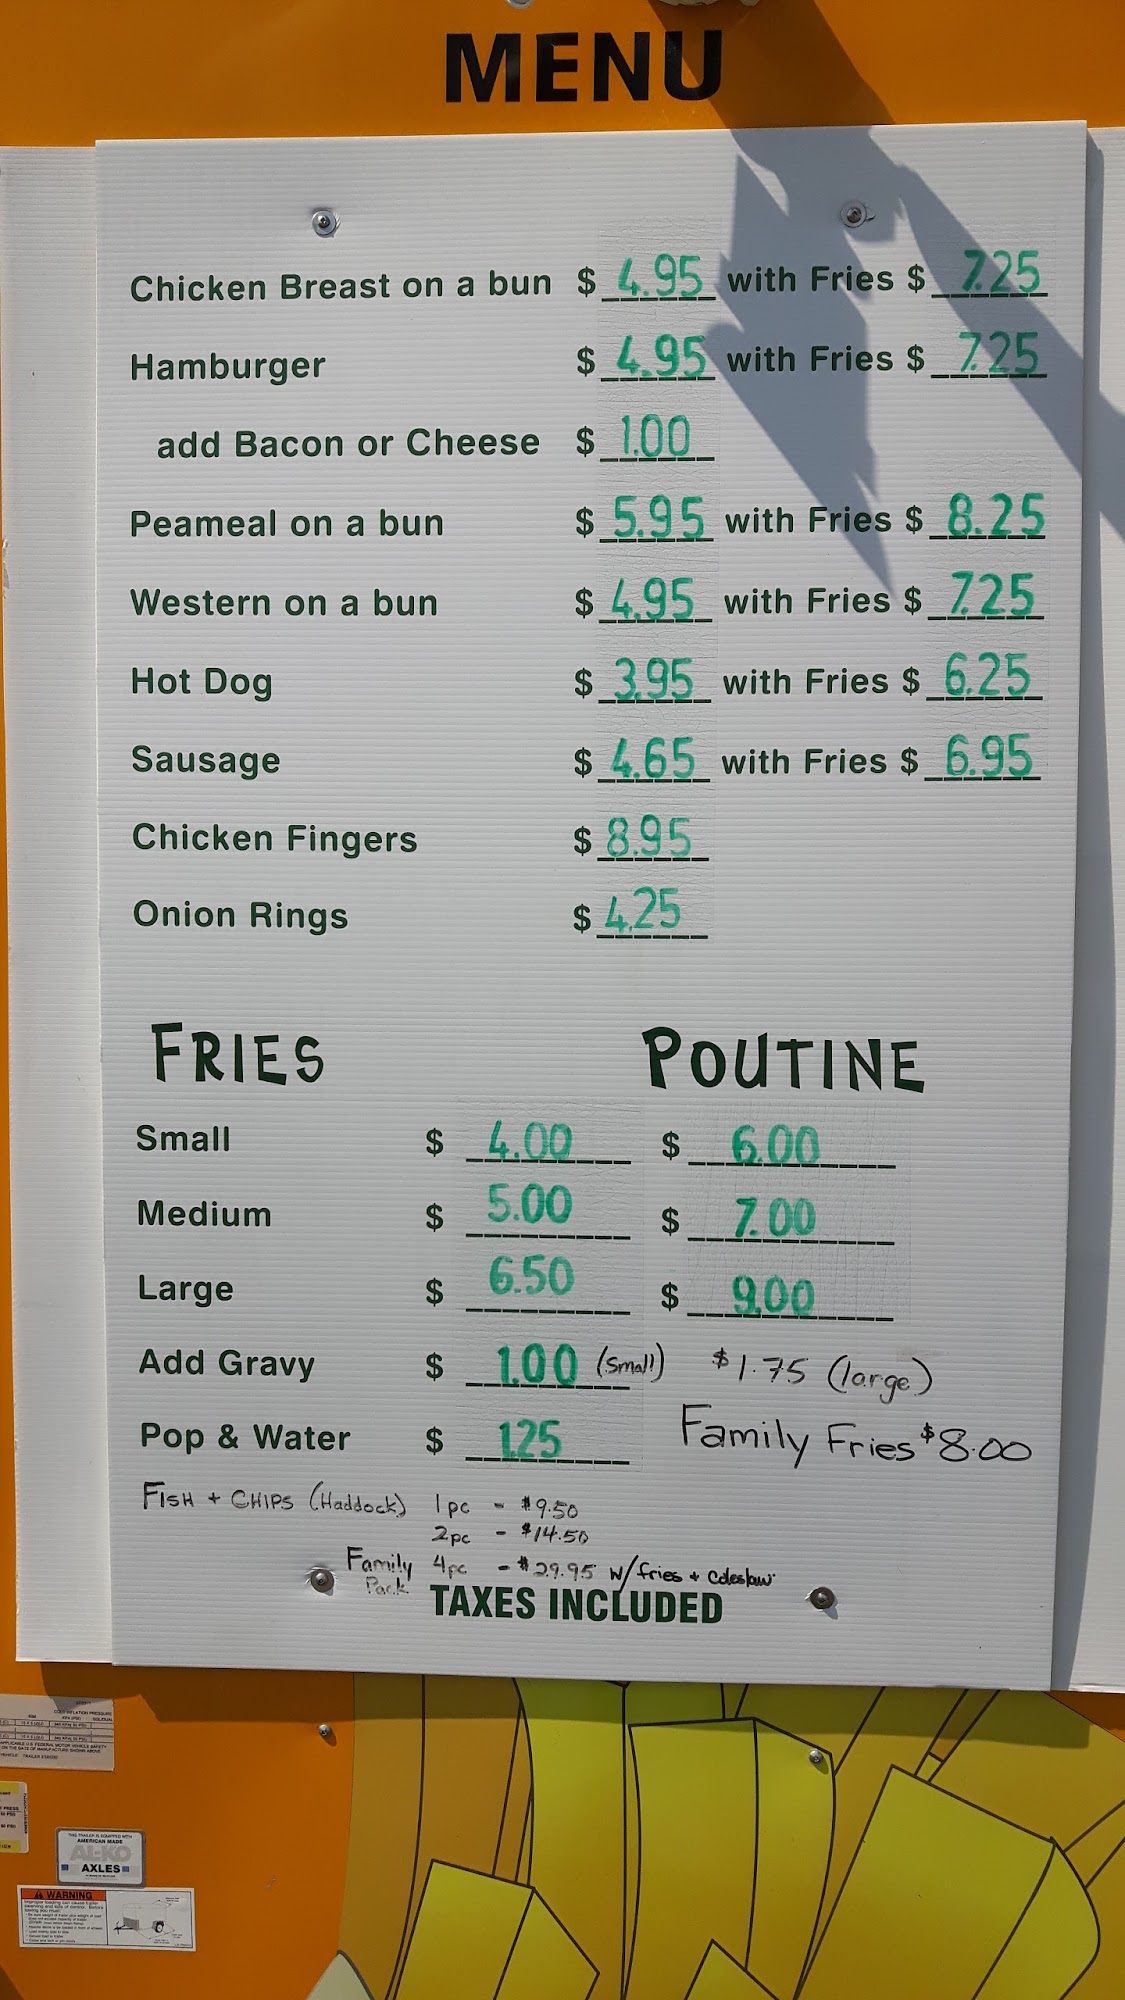 MENU
Chicken Breast on a bun $ 4.95 with Fries $ 7.25
Hamburger $ 4.95 with Fries $ 7.25
add Bacon or Cheese $ 1.00
Peameal on a bun $ 5.95 with Fries $ 8.25
Western on a bun $ 4.95 with Fries $ 7.25
Hot Dog $ 3.95 with Fries $ 6.25
Sausage $ 4.65 with Fries $ 6.95
Chicken Fingers $ 8.95
Onion Rings $ 4.25
FRIES POUTINE
Small $ 4.00 $ 6.00
Medium $ 5.00 $ 7.00
Large $ 6.50 $ 9.00
Add Gravy $ 1.00 (small) $1.75 (large)
Pop & Water $ 1.25 Family Fries $8.00
FISH + CHIPS (Haddock) 1pc - $9.50
2pc - $14.50
Family Pack 4pc - $29.95 w/fries + coleslaw
TAXES INCLUDED
THIS TRAILER IS EQUIPPED WITH
AMERICAN MADE
AL-KO
AXLES
WARNING